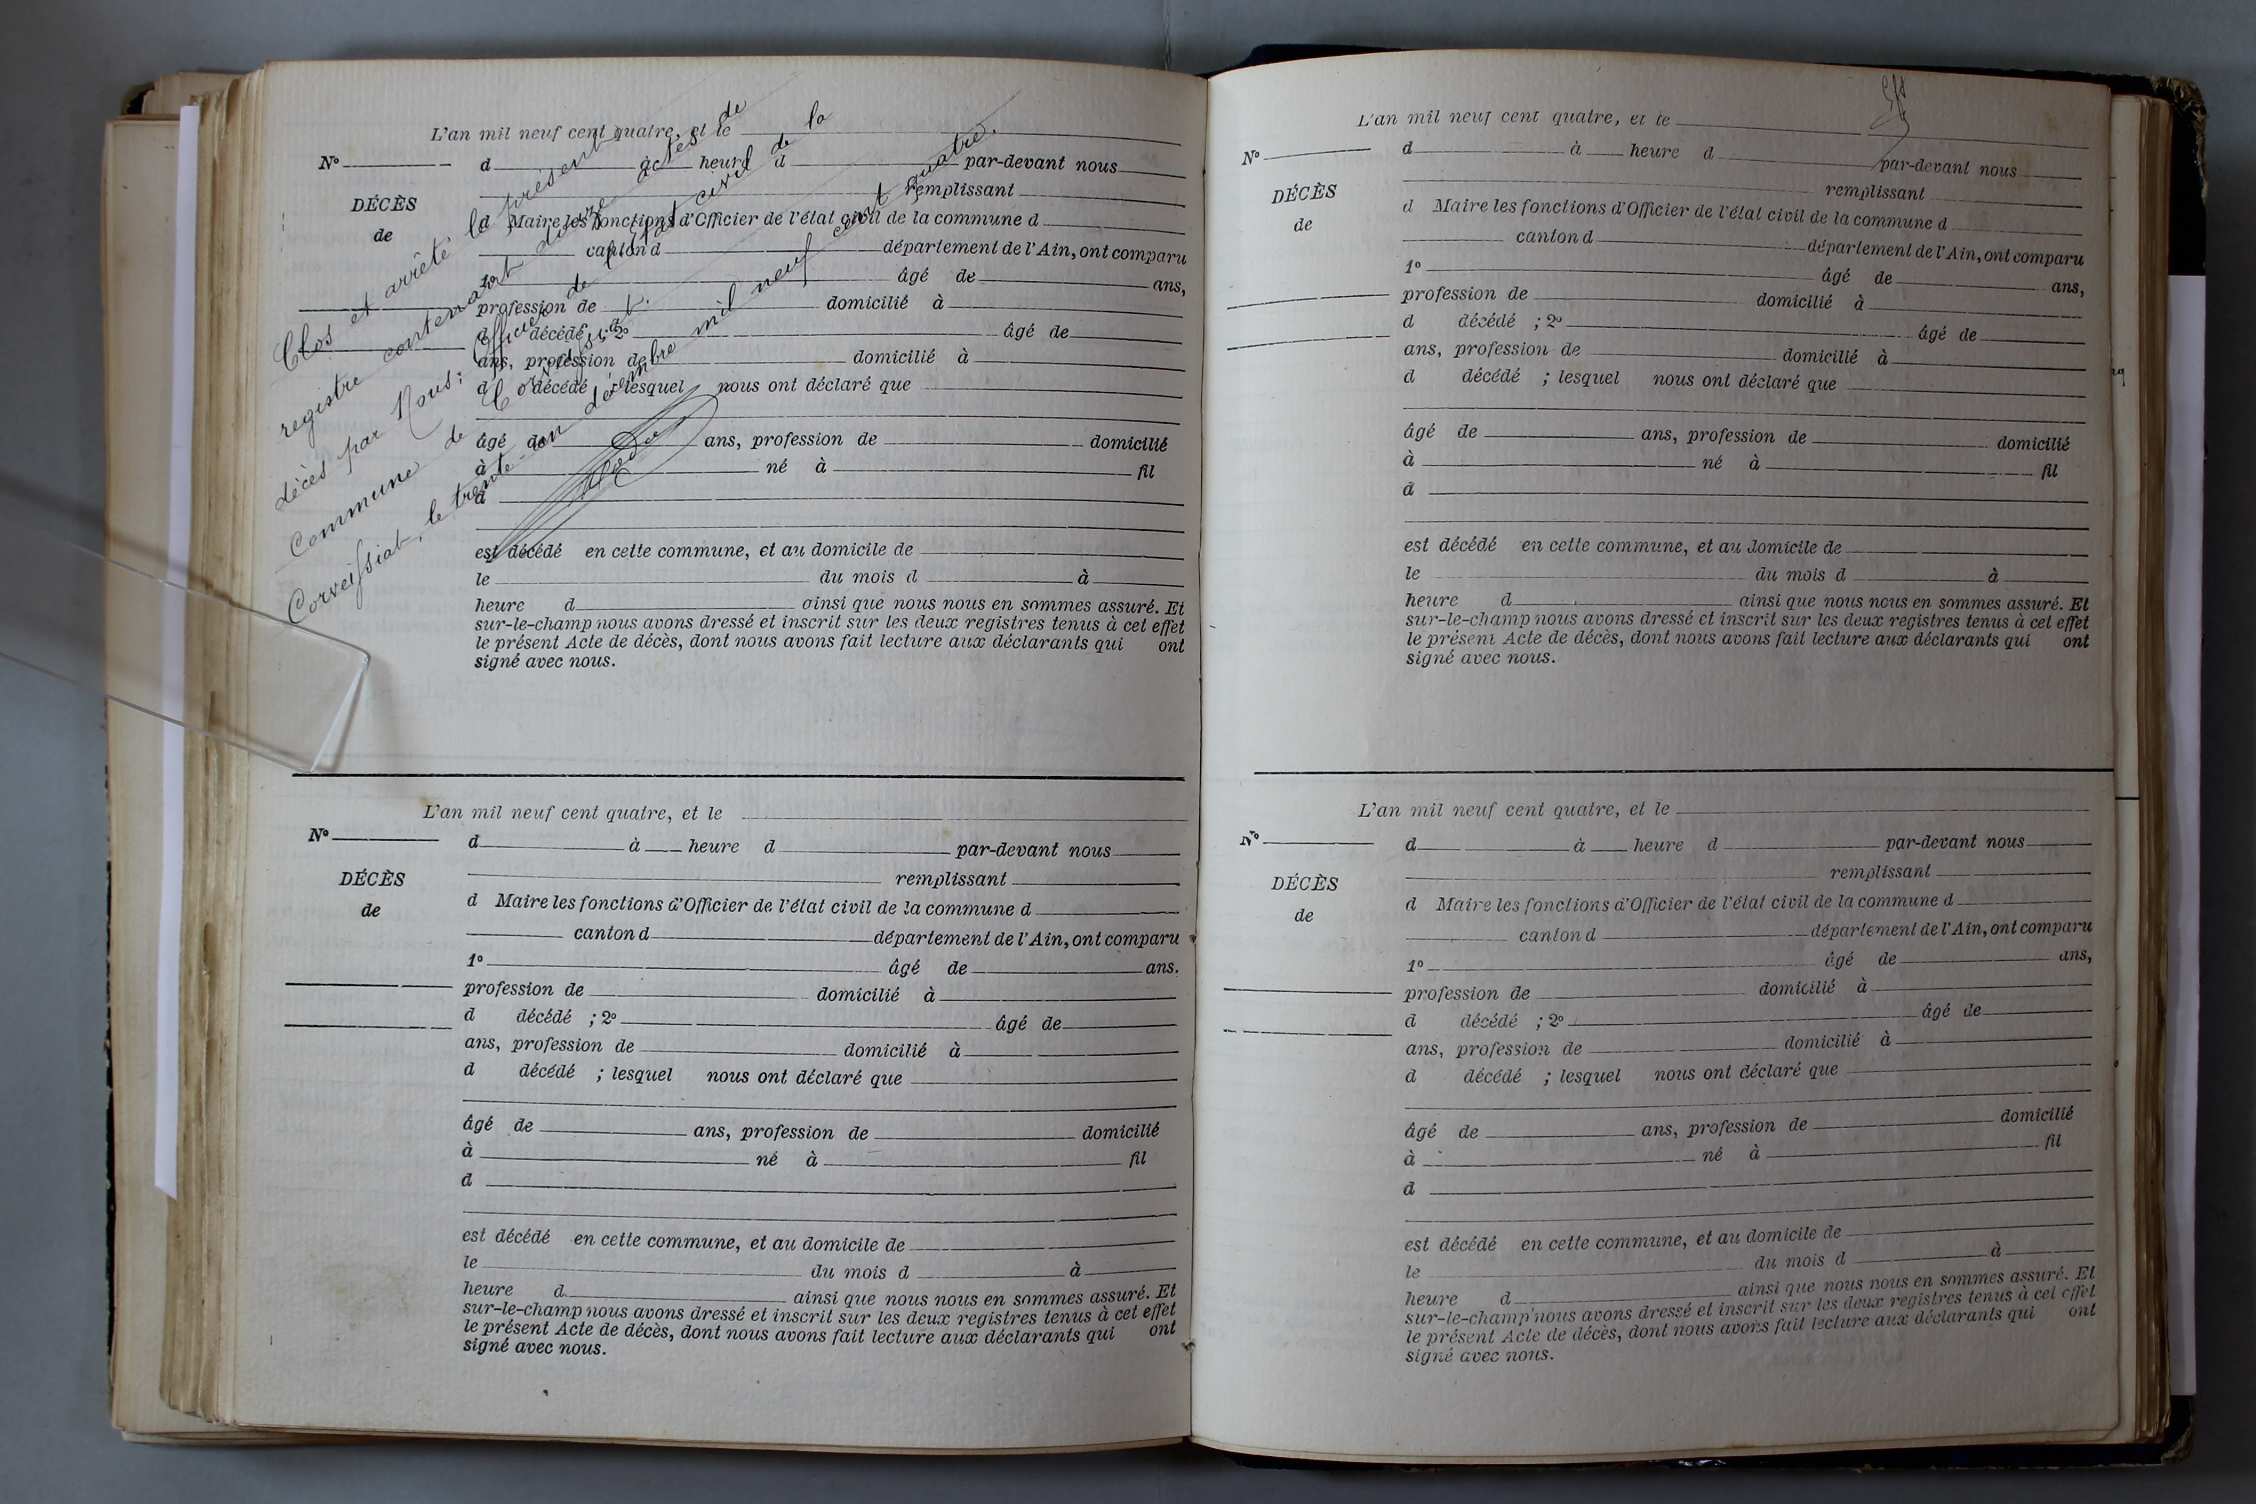 L'an mil neuf cent quatre, et le
N°
d à heure d par-devant nous
remplissant
DÉCÈS
de
d Maire les fonctions d'Officier de l'état civil de la commune d
canton d département de l'Ain, ont comparu
1° âgé de ans,
profession de domicilié à
d décédé ; 2° âgé de
ans, profession de domicilié à
d décédé ; lesquel nous ont déclaré que
âgé de ans, profession de domicilié
à né à fil
d
est décédé en cette commune, et au domicile de
le du mois d à
heure d ainsi que nous nous en sommes assuré. Et
sur-le-champ nous avons dressé et inscrit sur les deux registres tenus à cet effet
le présent Acte de décès, dont nous avons fait lecture aux déclarants qui ont
signé avec nous.
Clos et arrêté le présent
registre contenant actes de
décès par Nous: Officier de l'état civil de la
Commune de Corveissiat.
Corveissiat, le trente-un décembre mil neuf cent quatre.
L'an mil neuf cent quatre, et le
N°
d à heure d par-devant nous
remplissant
DÉCÈS
de
d Maire les fonctions d'Officier de l'état civil de la commune d
canton d département de l'Ain, ont comparu
1° âgé de ans.
profession de domicilié à
d décédé ; 2° âgé de
ans, profession de domicilié à
d décédé ; lesquel nous ont déclaré que
âgé de ans, profession de domicilié
à né à fil
d
est décédé en cette commune, et au domicile de
le du mois d à
heure d ainsi que nous nous en sommes assuré. Et
sur-le-champ nous avons dressé et inscrit sur les deux registres tenus à cet effet
le présent Acte de décès, dont nous avons fait lecture aux déclarants qui ont
signé avec nous.
L'an mil neuf cent quatre, et le
N°
d à heure d par-devant nous
remplissant
DÉCÈS
de
d Maire les fonctions d'Officier de l'état civil de la commune d
canton d département de l'Ain, ont comparu
1° âgé de ans,
profession de domicilié à
d décédé ; 2° âgé de
ans, profession de domicilié à
d décédé ; lesquel nous ont déclaré que
âgé de ans, profession de domicilié
à né à fil
d
est décédé en cette commune, et au domicile de
le du mois d à
heure d ainsi que nous nous en sommes assuré. Et
sur-le-champ nous avons dressé et inscrit sur les deux registres tenus à cet effet
le présent Acte de décès, dont nous avons fait lecture aux déclarants qui ont
signé avec nous.
L'an mil neuf cent quatre, et le
N°
d à heure d par-devant nous
remplissant
DÉCÈS
de
d Maire les fonctions d'Officier de l'état civil de la commune d
canton d département de l'Ain, ont comparu
1° âgé de ans,
profession de domicilié à
d décédé ; 2° âgé de
ans, profession de domicilié à
d décédé ; lesquel nous ont déclaré que
âgé de ans, profession de domicilié
à né à fil
d
est décédé en cette commune, et au domicile de
le du mois d à
heure d ainsi que nous nous en sommes assuré. Et
sur-le-champ nous avons dressé et inscrit sur les deux registres tenus à cet effet
le présent Acte de décès, dont nous avons fait lecture aux déclarants qui ont
signé avec nous.